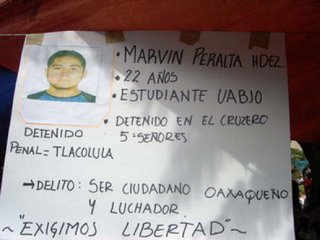 • MARVIN PERALTA HDEZ.
• 22 AÑOS
• ESTUDIANTE UABJO
• DETENIDO EN EL CRUZERO
5-SEÑORES
DETENIDO
PENAL = TLACOLULA
→ DELITO: SER CIUDADANO OAXAQUEÑO
Y LUCHADOR.
~"EXIGIMOS LIBERTAD"~